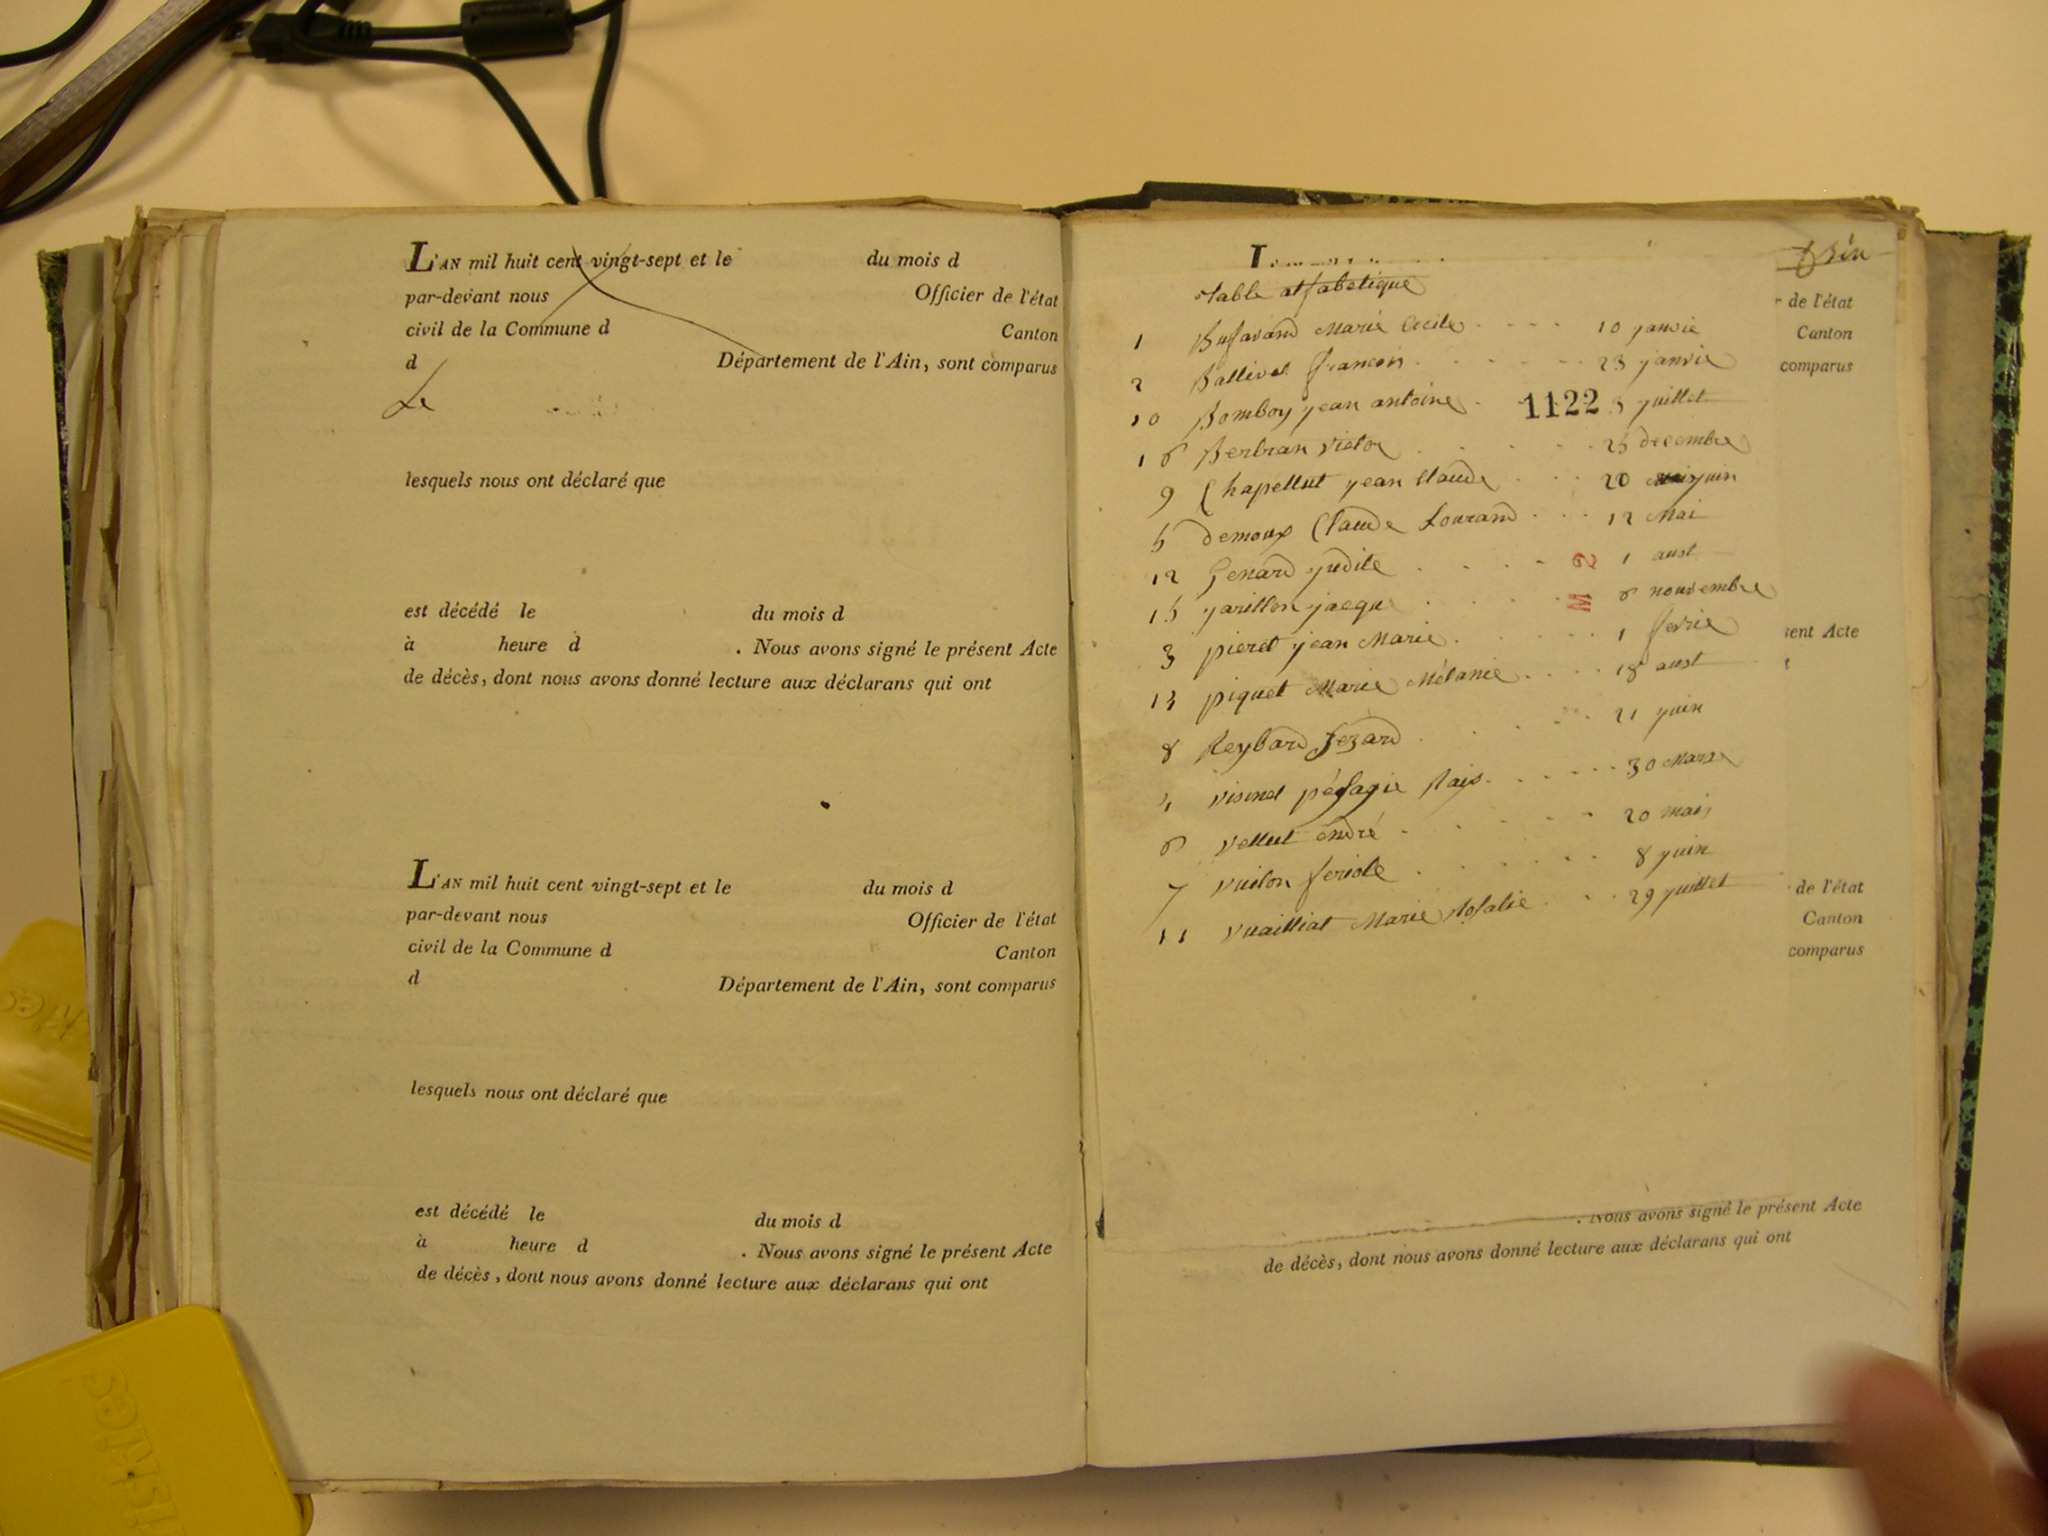 L'AN mil huit cent vingt-sept et le du mois d
par-devant nous Officier de l'état
civil de la Commune d Canton
d Département de l'Ain, sont comparus
Le
lesquels nous ont déclaré que
est décédé le du mois d
à heure d . Nous avons signé le présent Acte
de décès, dont nous avons donné lecture aux déclarans qui ont
L'AN mil huit cent vingt-sept et le du mois d
par-devant nous Officier de l'état
civil de la Commune d Canton
d Département de l'Ain, sont comparus
lesquels nous ont déclaré que
est décédé le du mois d
à heure d . Nous avons signé le présent Acte
de décès, dont nous avons donné lecture aux déclarans qui ont
table alfabetique
de l'état
1 Bufavand Marie Cecile 10 janvie
Canton
2 Ballivet francois 23 janvie
comparus
10 Bomboy jean antoine 1122 5 juillet
16 Bertran victor 25 decembre
9 Chapellut jean Claude 20 juin
5 demoux Claude Lourand 12 Mai
12 Genard judite 1 aust
M 2
15 jarillon jacque 6 nouvembre
3 pieret jean Marie 1 fevrie
sent Acte
13 piquet Marie Mélanie 18 aust
8 Reybard Sezard 21 juin
4 visinet pélagie 30 Mars
6 vellut éndré 20 mais
7 vuilon feriole 8 juin
11 vuailliat Marie Rosalie 29 juillet
de l'état
Canton
comparus
. Nous avons signé le présent Acte
de décès, dont nous avons donné lecture aux déclarans qui ont